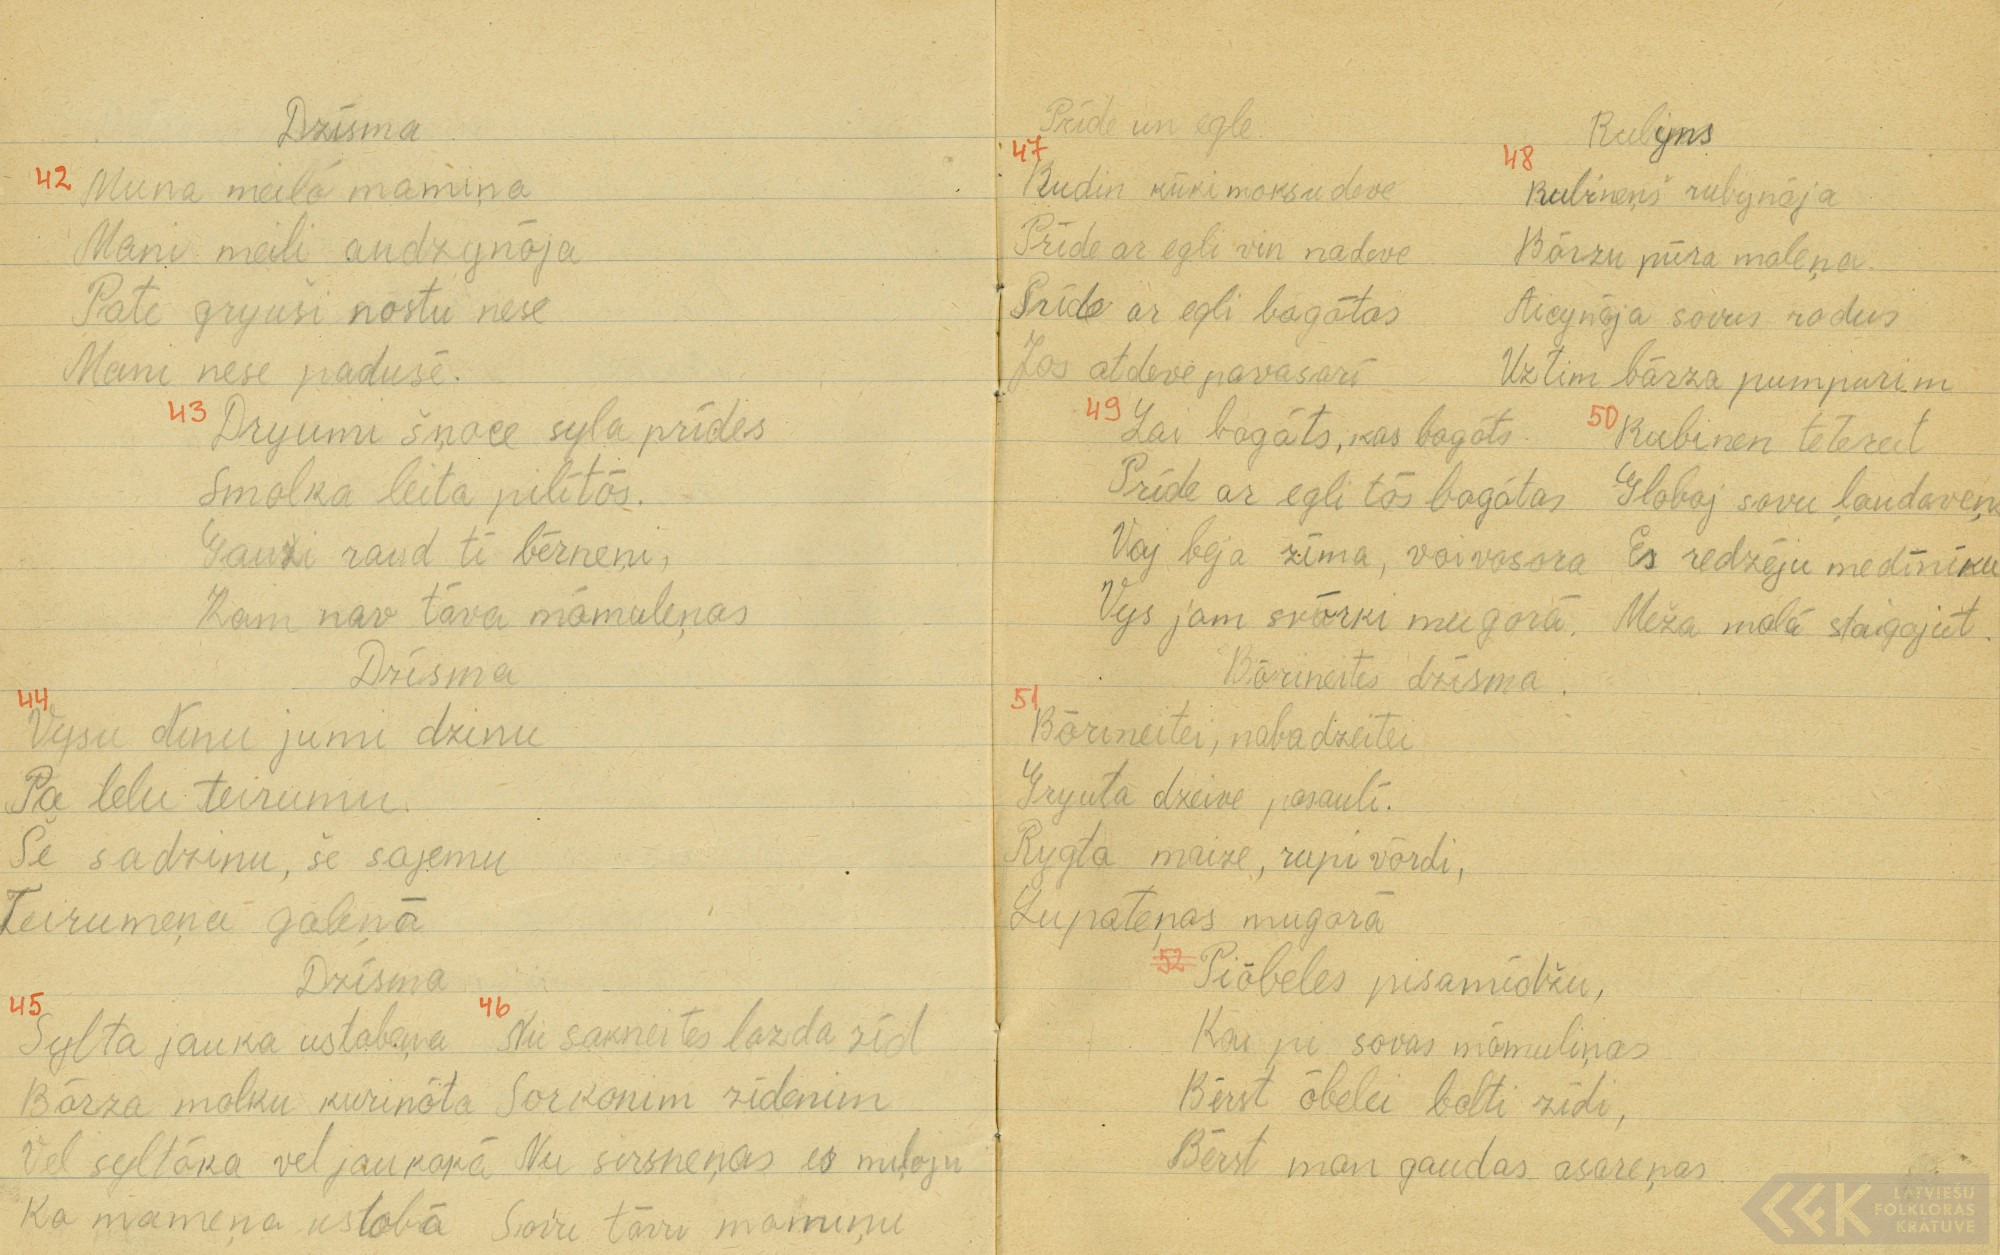 Dzīsma
42 Muna meilā mamiņa
Mani meili audzynōja
Pate gryuši nostu nese
Mani nese padusē.
43 Dryumi šņoce syla prīdes
Smolka leita pilītōs.
Gauži raud tī bērneņi,
Kam nav tāva māmuleņas
Dzīsma
44 Vysu dīnu jumi dzinu
Pa lelu teirumu.
Še sadzinu, še sajemu
Teirumeņa galeņā
Dzīsma
45 Sylta jauka ustabeņa
Bōrza malku kurinōta
Vel syltōka vel jaukokā
Ka mameņa ustobā
46 Nu sakneites lazda zīd
Sorkonim zīdenim
Nu sirsneņas es miļoju
Sovu tāvu momuņu
Prīde un egle.
47 Rudin kūki moksu deve
Prīde ar egli vin nadeve
Prīde ar egli bogōtas
Jos atdeve pavasarī
Rubyns
48 Rubineņš rubynōja
Bōrzu pūra maleņa.
Aicynōja sovus rodus
Uz tim bārza pumpurim
49 Lai bogāts, kas bogots.
Prīde ar egli tōs bogōtas
Voj beja zīma, voi vosora
Vys jom svōrki mugorā.
50 Rubinen teterit
Globoj sovu ļaudaveņ
Es redzēju medīnīku
Meža molā staigojūt.
Bōrineites dzīsma.
51 Bōrineitei, nabadzeitei
Gryuta dzeive pasaulī.
Rygta maize, rupi vōrdi,
Lupateņas mugorā
52 Piōbeles pisamīdžu,
Kai pi sovas māmuliņas
Bērst ōbelei bolti zīdi,
Bērst man gaudas asareņas
LATVIEŠU
FOLKLORAS
KRĀTUVE